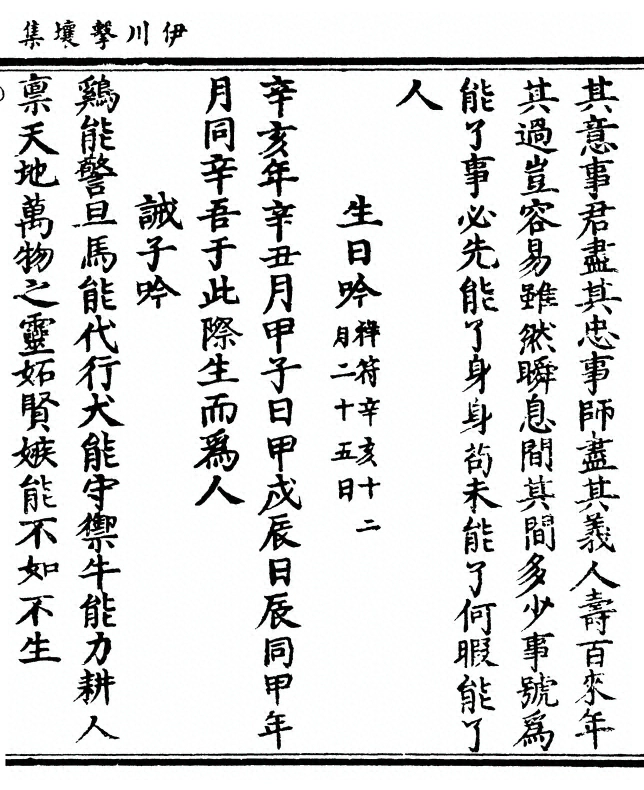 伊川擊壤集
其意事君盡其忠事師盡其義人壽百來年
其過豈容易雖然瞬息間其間多少事號爲
能了事必先能了身身茍未能了何暇能了
人
生日吟祥符辛亥十二
月二十五日
辛亥年辛丑月甲子日甲戌辰日辰同甲年
月同辛吾于此際生而爲人
誡子吟
鷄能警旦馬能代行犬能守禦牛能力耕人
禀天地萬物之靈妬賢嫉能不如不生